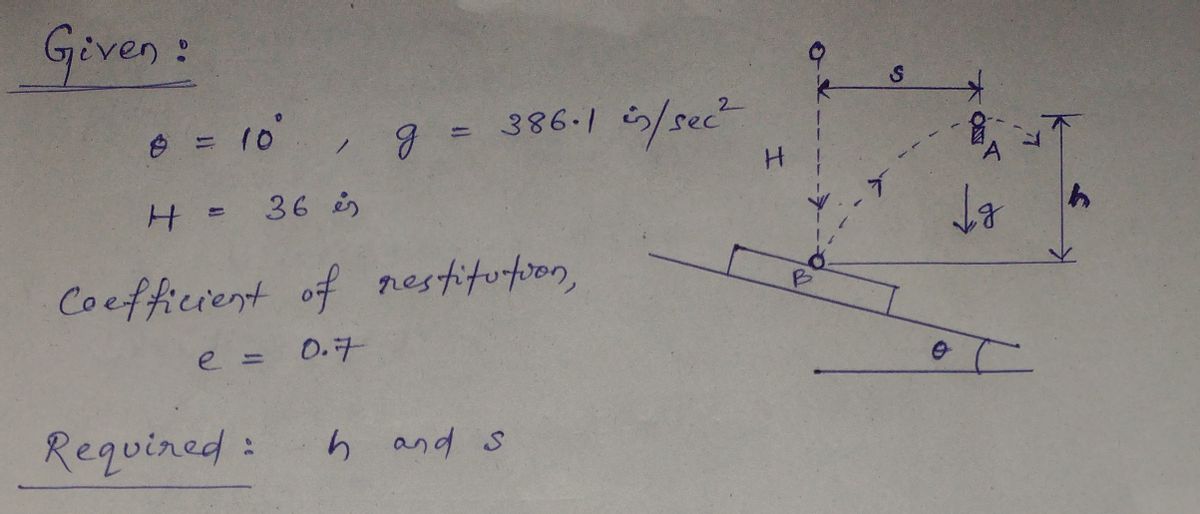 Given :
θ = 10° , g = 386.1 in/sec²
H = 36 in
Coefficient of restitution,
e = 0.7
Required : h and s
s
H
A
g
h
B
θ